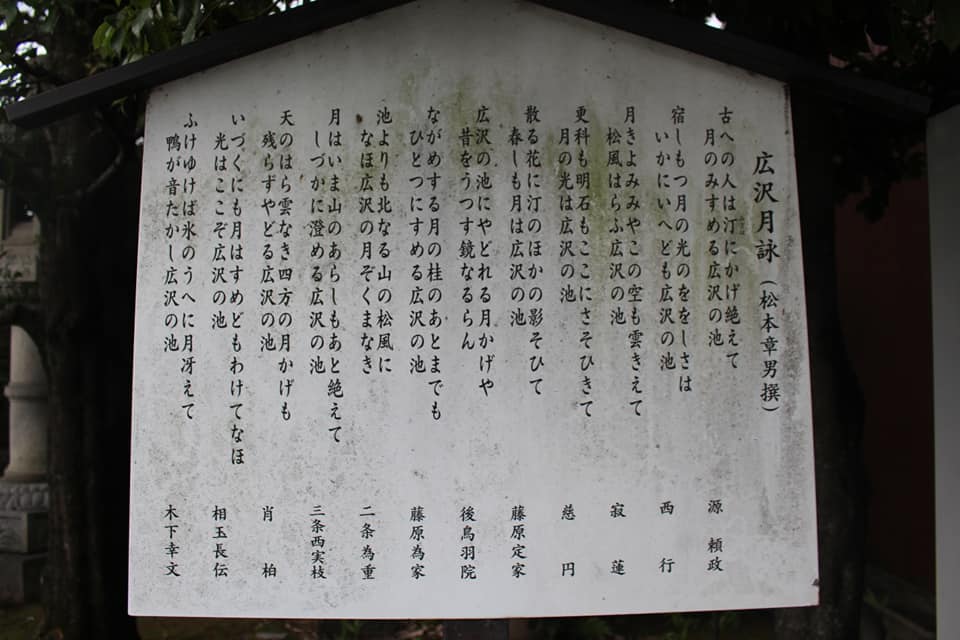 広沢月詠(松本章男撰)
古への人は汀にかげ絶えて
月のみすめる広沢の池
源 頼政
宿しもつ月の光のををしさは
いかにいへども広沢の池
西 行
月きよみみやこの空も雲きえて
松風はらふ広沢の池
寂 蓮
更科も明石もここにさそひきて
月の光は広沢の池
慈 円
散る花に汀のほかの影そひて
春しも月は広沢の池
藤原定家
広沢の池にやどれる月かげや
昔をうつす鏡なるらん
後鳥羽院
ながめする月の桂のあとまでも
ひとつにすめる広沢の池
藤原為家
池よりも北なる山の松風に
なほ広沢の月ぞくまなき
二条為重
月はいま山のあらしもあと絶えて
しづかに澄める広沢の池
三条西実枝
天のはら雲なき四方の月かげも
残らずやどる広沢の池
肖 柏
いづくにも月はすめどもわけてなほ
光はここぞ広沢の池
相玉長伝
ふけゆけば氷のうへに月冴えて
鴨が音たかし広沢の池
木下幸文